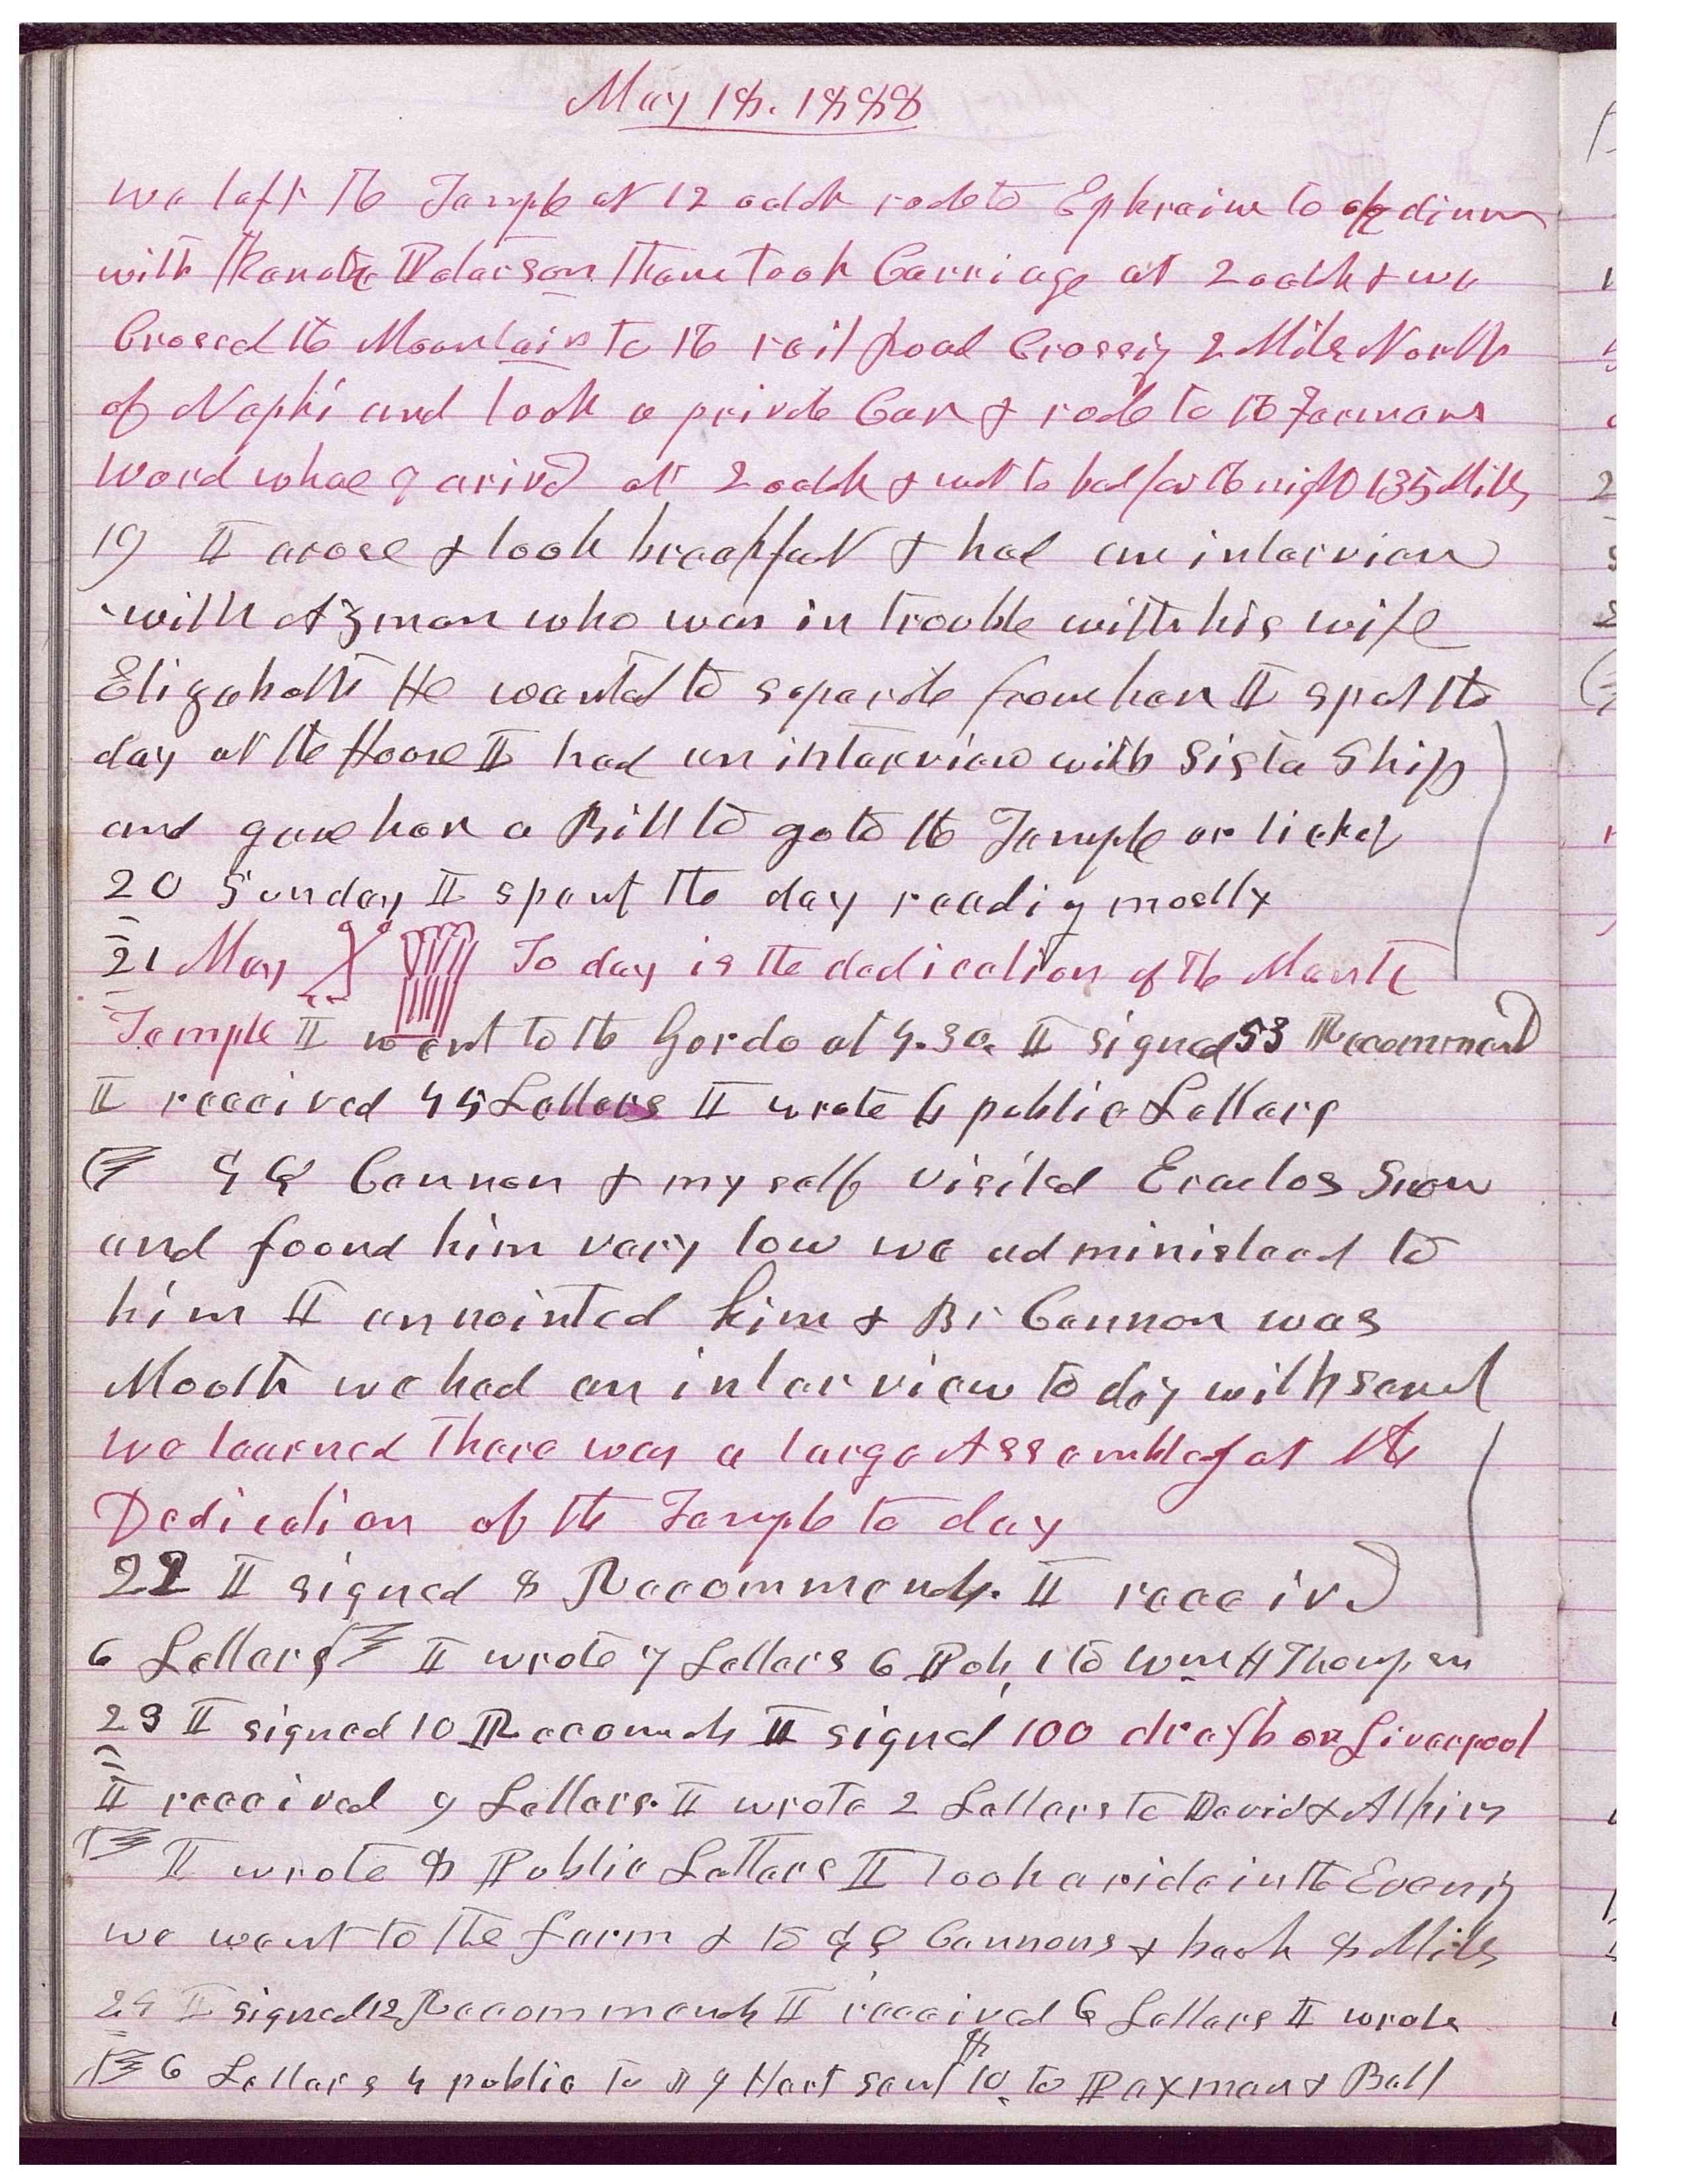 May 18. 1888
we left the Temple at 12 oclok rode to Ephraim to dinner
with Peterson then took Carriage at 2 oclk & we
Crosed the Mountains to the rail Road Crossig 2 Miles North
of Nephi and took a private Car & rode to the Farmers
Ward whare I arivd at 2 oclk & wet to bed for the night 135 Miles
19 I arose & took breakfast & had an interview
with Azmon who was in trouble with his wife
Elizabeth He wanted to separate from her I spet the
day at the House I had an interview with Sister Ship
and gave her a Bill to go to the Temple or ticket
20 Sunday I spent the day readig mostly
21 May To day is the dedication of the Manti
Temple I went to the Gardo at 4.30. I signed 53 Recommend
I received 45 Letters I wrote 4 public Letters
G Q Cannon & my self visited Erastos Snow
and found him very low we administerd to
him I annointed him & Br Cannon was
Mouth we had an interview to day with several
We learned there was a large Assembley at the
Dedication of the Temple to day
22 I signed 8 Recommends. I receivd
6 Letters I wrote 7 Letters 6 Pub, 1 to Wm H Thompson
23 I signed 10 Recomds I signed 100 drafts on Liverpool
I received 9 Letters. I wrote 2 Letters to David &
I wrote 8 Public Letters I took a ride in the Evenig
we went to the farm & to G Q Cannons & back 8 Miles
24 I signed 12 Recommends I received 6 Letters I wrote
6 Letters 4 public to Hart sent $10. to Paxman & Ball